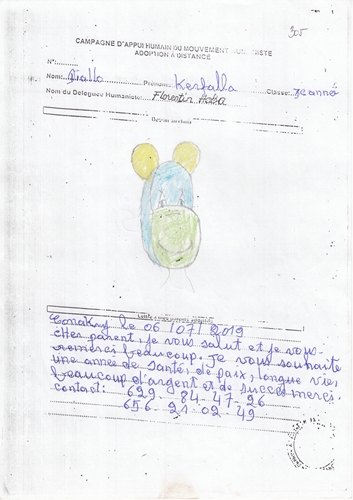 305
CAMPAGNE D'APPUI HUMAIN DU MOUVEMENT HUMANISTE
ADOPTION A DISTANCE
N°:
Nom: Diallo Prénom: Kerfalla Classe: 7eanné
Nom du Délégué Humaniste: Florentin Haba
Dessin au choix
Conakry le 06/07/2019
cher parent, je vous salut et je vous
remerci beaucoup. je vous souhaite
une année de santé, de paix, longue vie,
beaucoup d'argent et de succès merci.
contact: 629-84-47-26
656-21-02-49